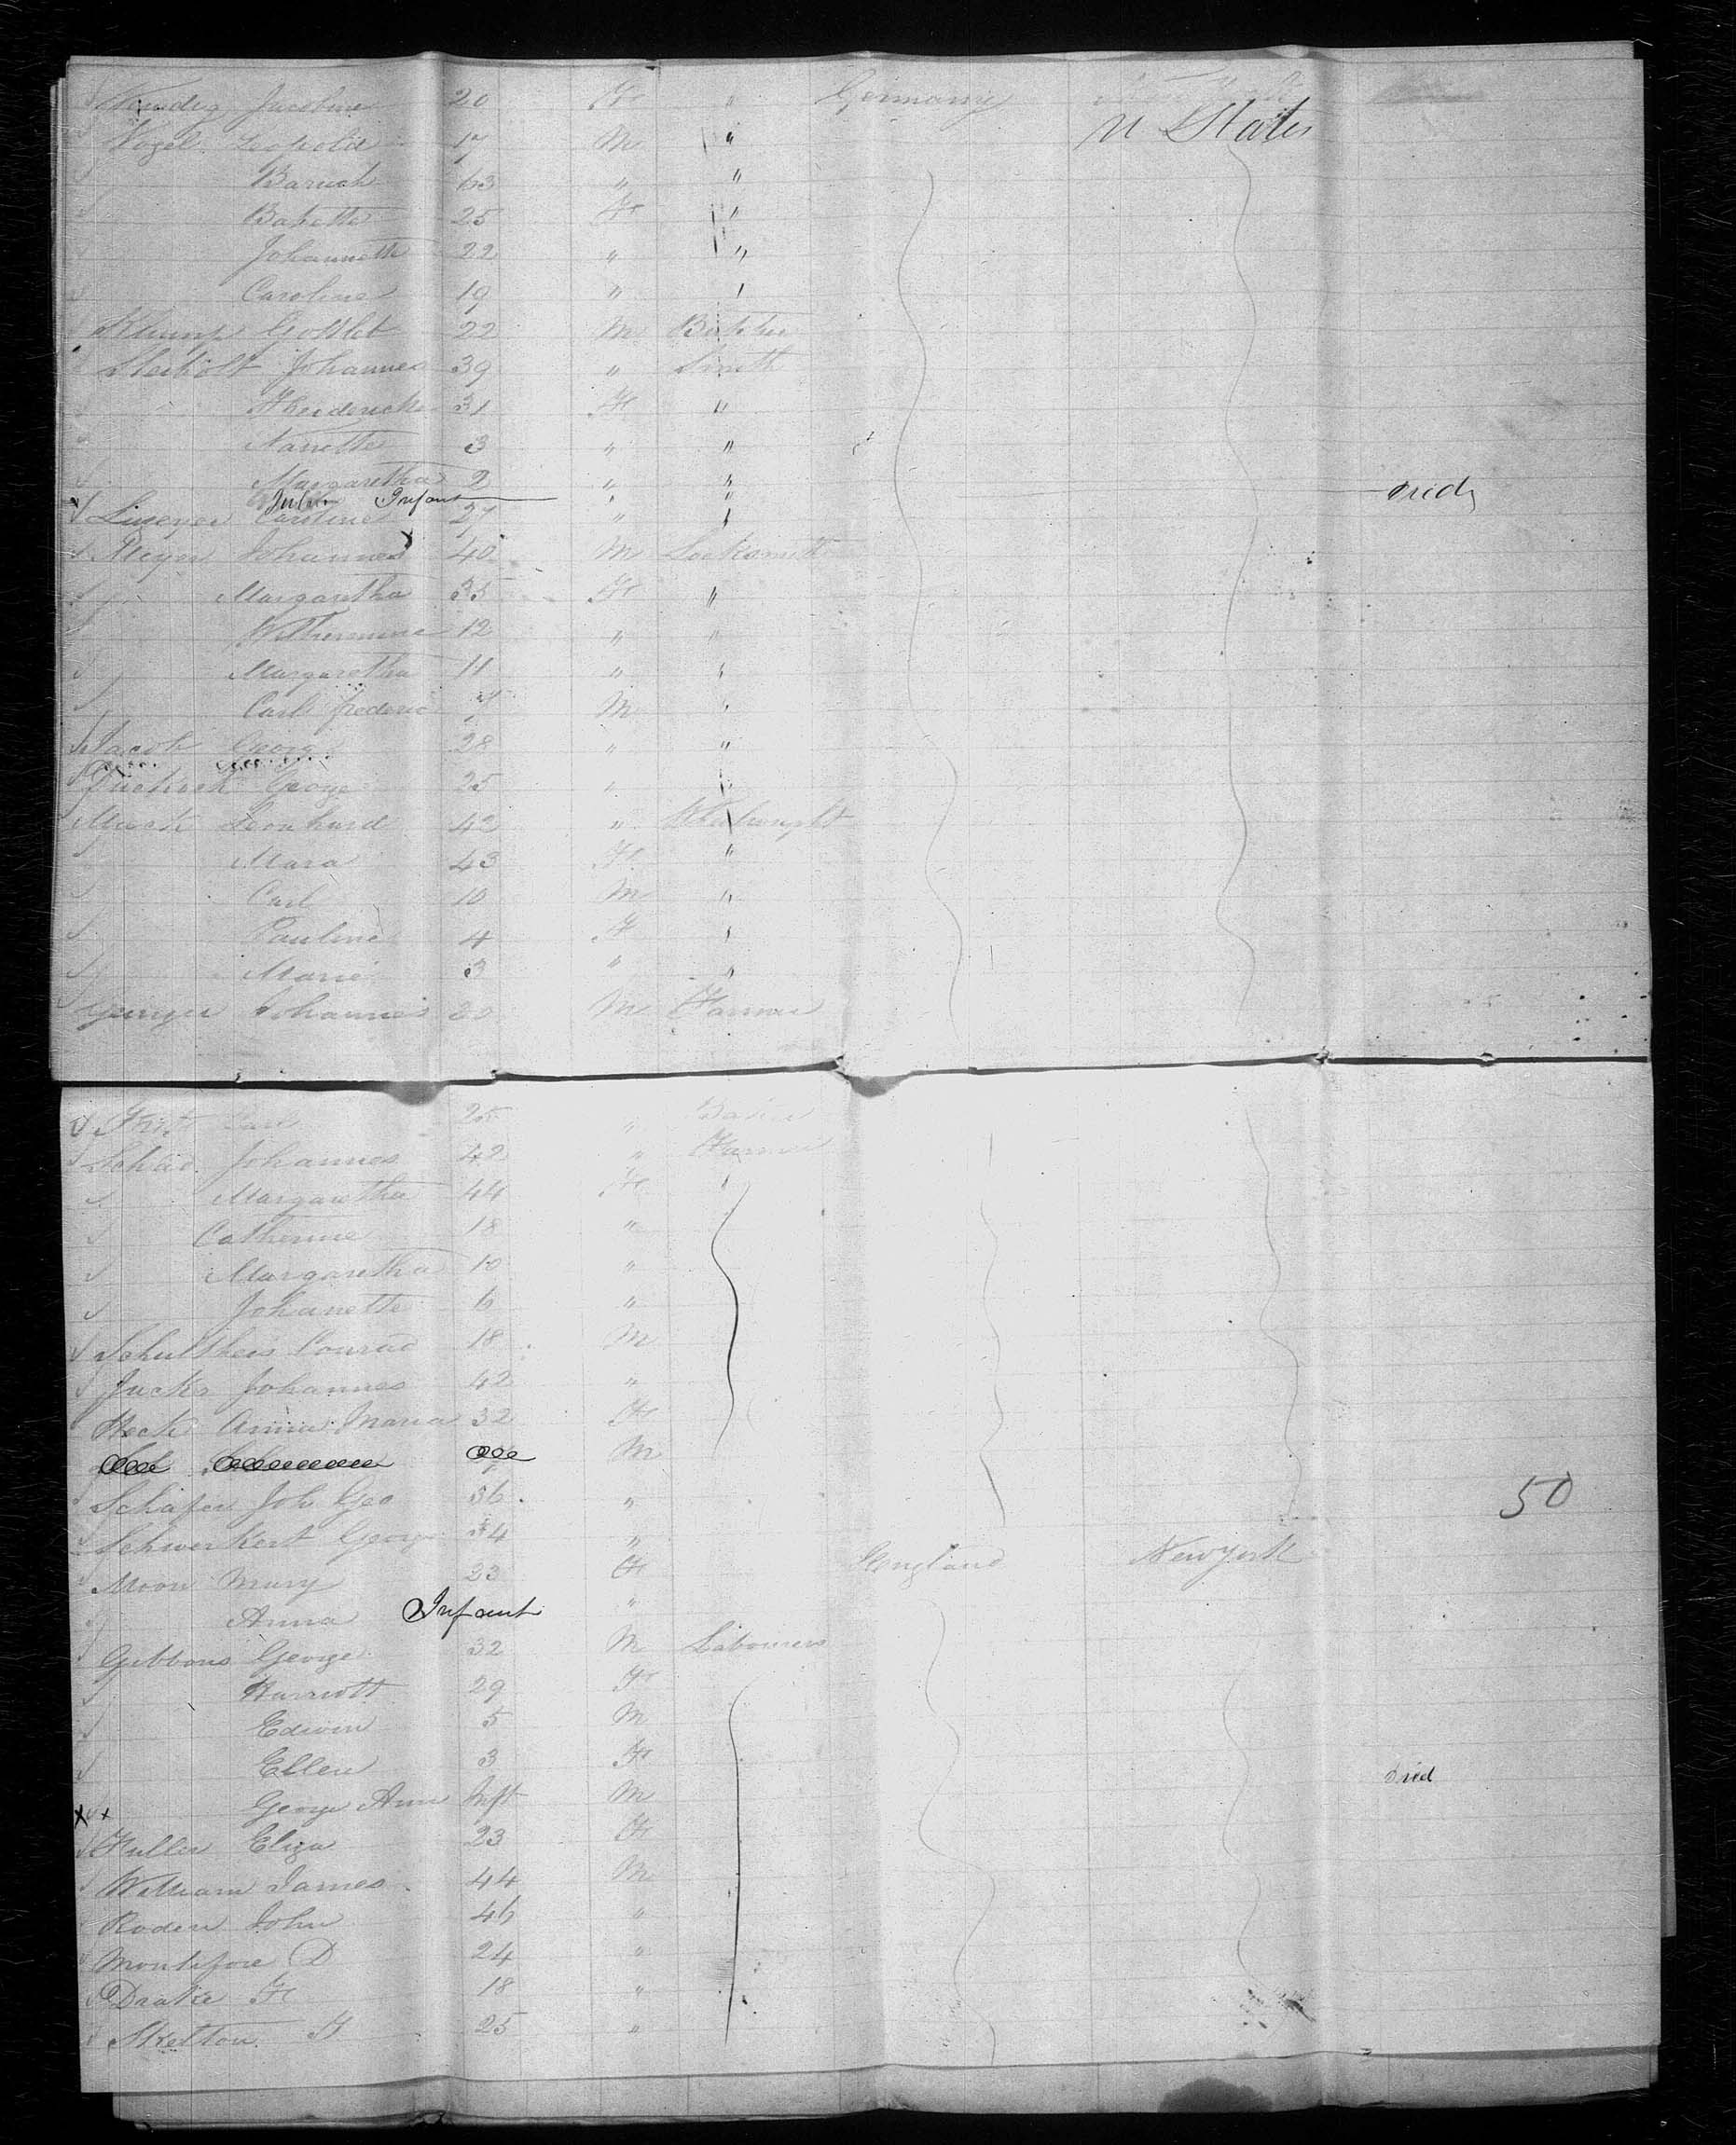 Jacobine 20 F " Germany
U States
Vogel Leopold 17 M "
Baruch 63 " "
Babette 25 F "
Johannette 22 " "
Caroline 19 " "
Klump Gottlob 22 M Butcher
Johannes 39 " Smith
31 F "
Nanette 3 " "
Margaretha 2 " "
Infant " " Died
Caroline 27 " "
Meyer Johannes 40 M Locksmith
Margaretha 35 F "
Wilhermine 12 " "
Margaretha 11 " "
Carl Frederic M "
Jacob Georg 28 " "
George 25 " "
Muck Leonhard 42 " Wheelwright
Mara 43 F "
Carl 10 M "
Pauline 4 F "
Marie 3 " "
Johannes 20 M Farmer
Carl 25 " Baker
Schad Johannes 42 " Farmer
Margaretha 44 F "
Catherine 18 "
Margaretha 10 "
Johanette 6 "
Schultheis Conrad 18 M
Jucks Johannes 42 "
Heck Anna Maria 32 F
M
Schafer Joh Geo 36 " 50
Schwerkert George 34 "
Moon Mary 23 F England New York
Anna Infant "
Gibbons George 32 M Labourers
Harriott 29 F
Edwin 5 M
Ellen 3 F
George Ann Inft M Died
Fuller Eliza 23 F
William James 44 M
Roden John 46 "
Montifore D 24 "
Drake H 18 "
Skelton 25 "